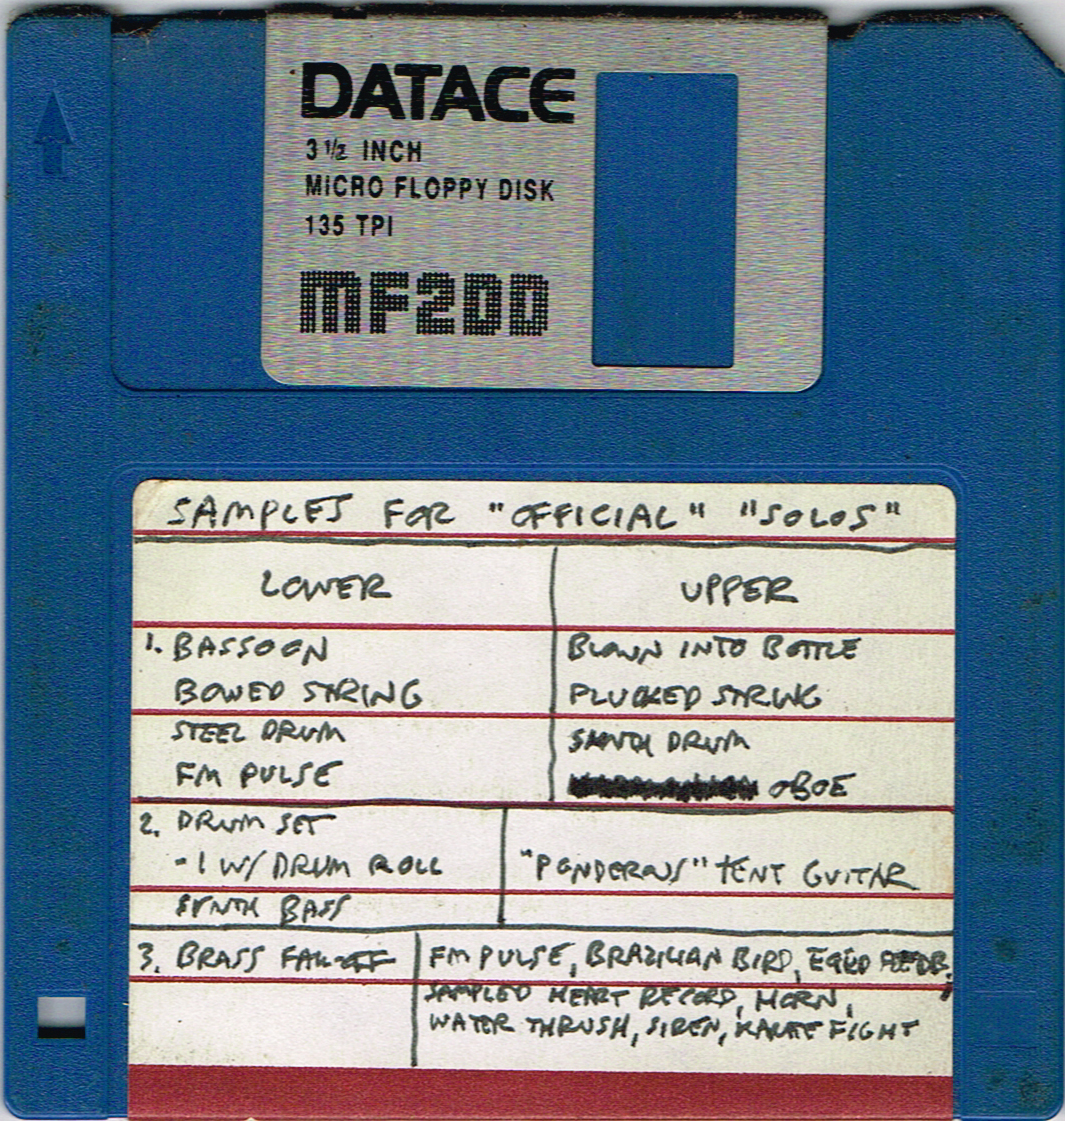 DATACE
3 1/2 INCH
MICRO FLOPPY DISK
135 TPI
MF2DD
SAMPLES FOR "OFFICIAL" "SOLOS"
LOWER
UPPER
1. BASSOON
BLOWN INTO BOTTLE
BOWED STRING
PLUCKED STRING
STEEL DRUM
SYNTH DRUM
FM PULSE
OBOE
2. DRUM SET
- 1 W/ DRUM ROLL
"PONDEROUS" TENT GUITAR
SYNTH BASS
3. BRASS FALL-OFF
FM PULSE, BRAZILIAN BIRD,
SAMPLED HEART RECORD, HORN,
WATER THRUSH, SIREN, KARATE FIGHT